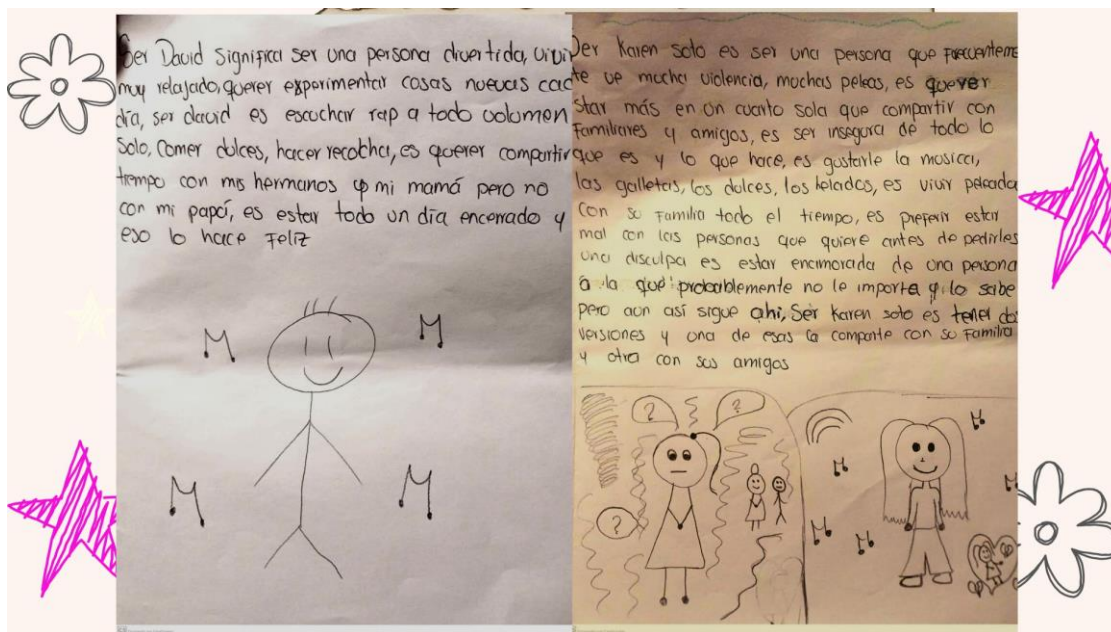 Ser David significa ser una persona divertida, vivir
muy relajado, querer experimentar cosas nuevas cad
día, ser david es escuchar rap a todo volomen
Solo, Comer dulces, hacer recocha, es querer compartir
tiempo con mis hermanos y mi mamá pero no
con mi papá, es estar todo un día encerrado y
eso lo hace Feliz
Ser Karen soto es ser una persona que frecuenteme
te ve mucha violencia, muchas peleas, es querer
star más en un cuarto sola que compartir con
Familiares y amigos, es ser insegura de todo lo
que es y lo que hace, es gustarle la musica,
las galletas, los dulces, los helados, es vivir peleada
con su Familia todo el tiempo, es preferir estar
mal con las personas que quiere antes de pedirles
una disculpa es estar enamorada de una persona
a la que probablemente no le importa y lo sabe
pero aun así sigue ahi, Ser Karen soto es tener dos
versiones y una de esas la comparte con su Familia
y otra con sus amigos
? ?
?